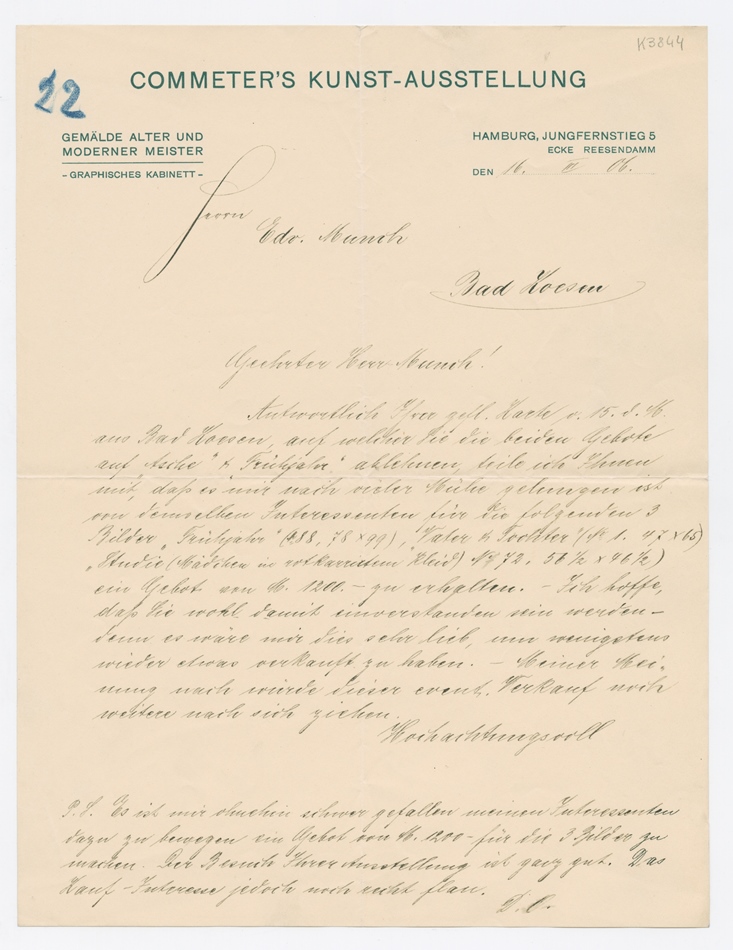 K3844
22
COMMETER'S KUNST-AUSSTELLUNG
GEMÄLDE ALTER UND
MODERNER MEISTER
- GRAPHISCHES KABINETT -
HAMBURG, JUNGFERNSTIEG 5
ECKE REESENDAMM
DEN 16. II 06.
Herrn
Edv. Munch
Bad Koesen
Geehrter Herr Munch!
Antwortlich Ihrer gefl. Karte v. 15. d. M.
aus Bad Koesen, auf welcher Sie die beiden Gebote
auf „Asche" & „Frühjahr" ablehnen, teile ich Ihnen
mit, daß es mir nach vieler Mühe gelungen ist
von demselben Interessenten für die folgenden 3
Bilder „Frühjahr" (288, 78 x 99), „Vater & Tochter" (N. 1. 47 x 65)
„Studie (Mädchen in rotkarrirtem Kleid) 72. 56 ½ x 46 ½)
ein Gebot von M. 1200.- zu erhalten. - Ich hoffe,
daß Sie wohl damit einverstanden sein werden -
denn es wäre mir dies sehr lieb, um wenigstens
wieder etwas verkauft zu haben. - Meiner Mei-
nung nach würde dieser event. Verkauf noch
weitere nach sich ziehen.
Hochachtungsvoll
P. S. Es ist mir ohnehin schwer gefallen meinen Interessenten
dazu zu bewegen ein Gebot von M. 1200- für die 3 Bilder zu
machen. Der Besuch Ihrer Ausstellung ist ganz gut. Das
Kauf-Interesse jedoch noch recht flau.
D. O.